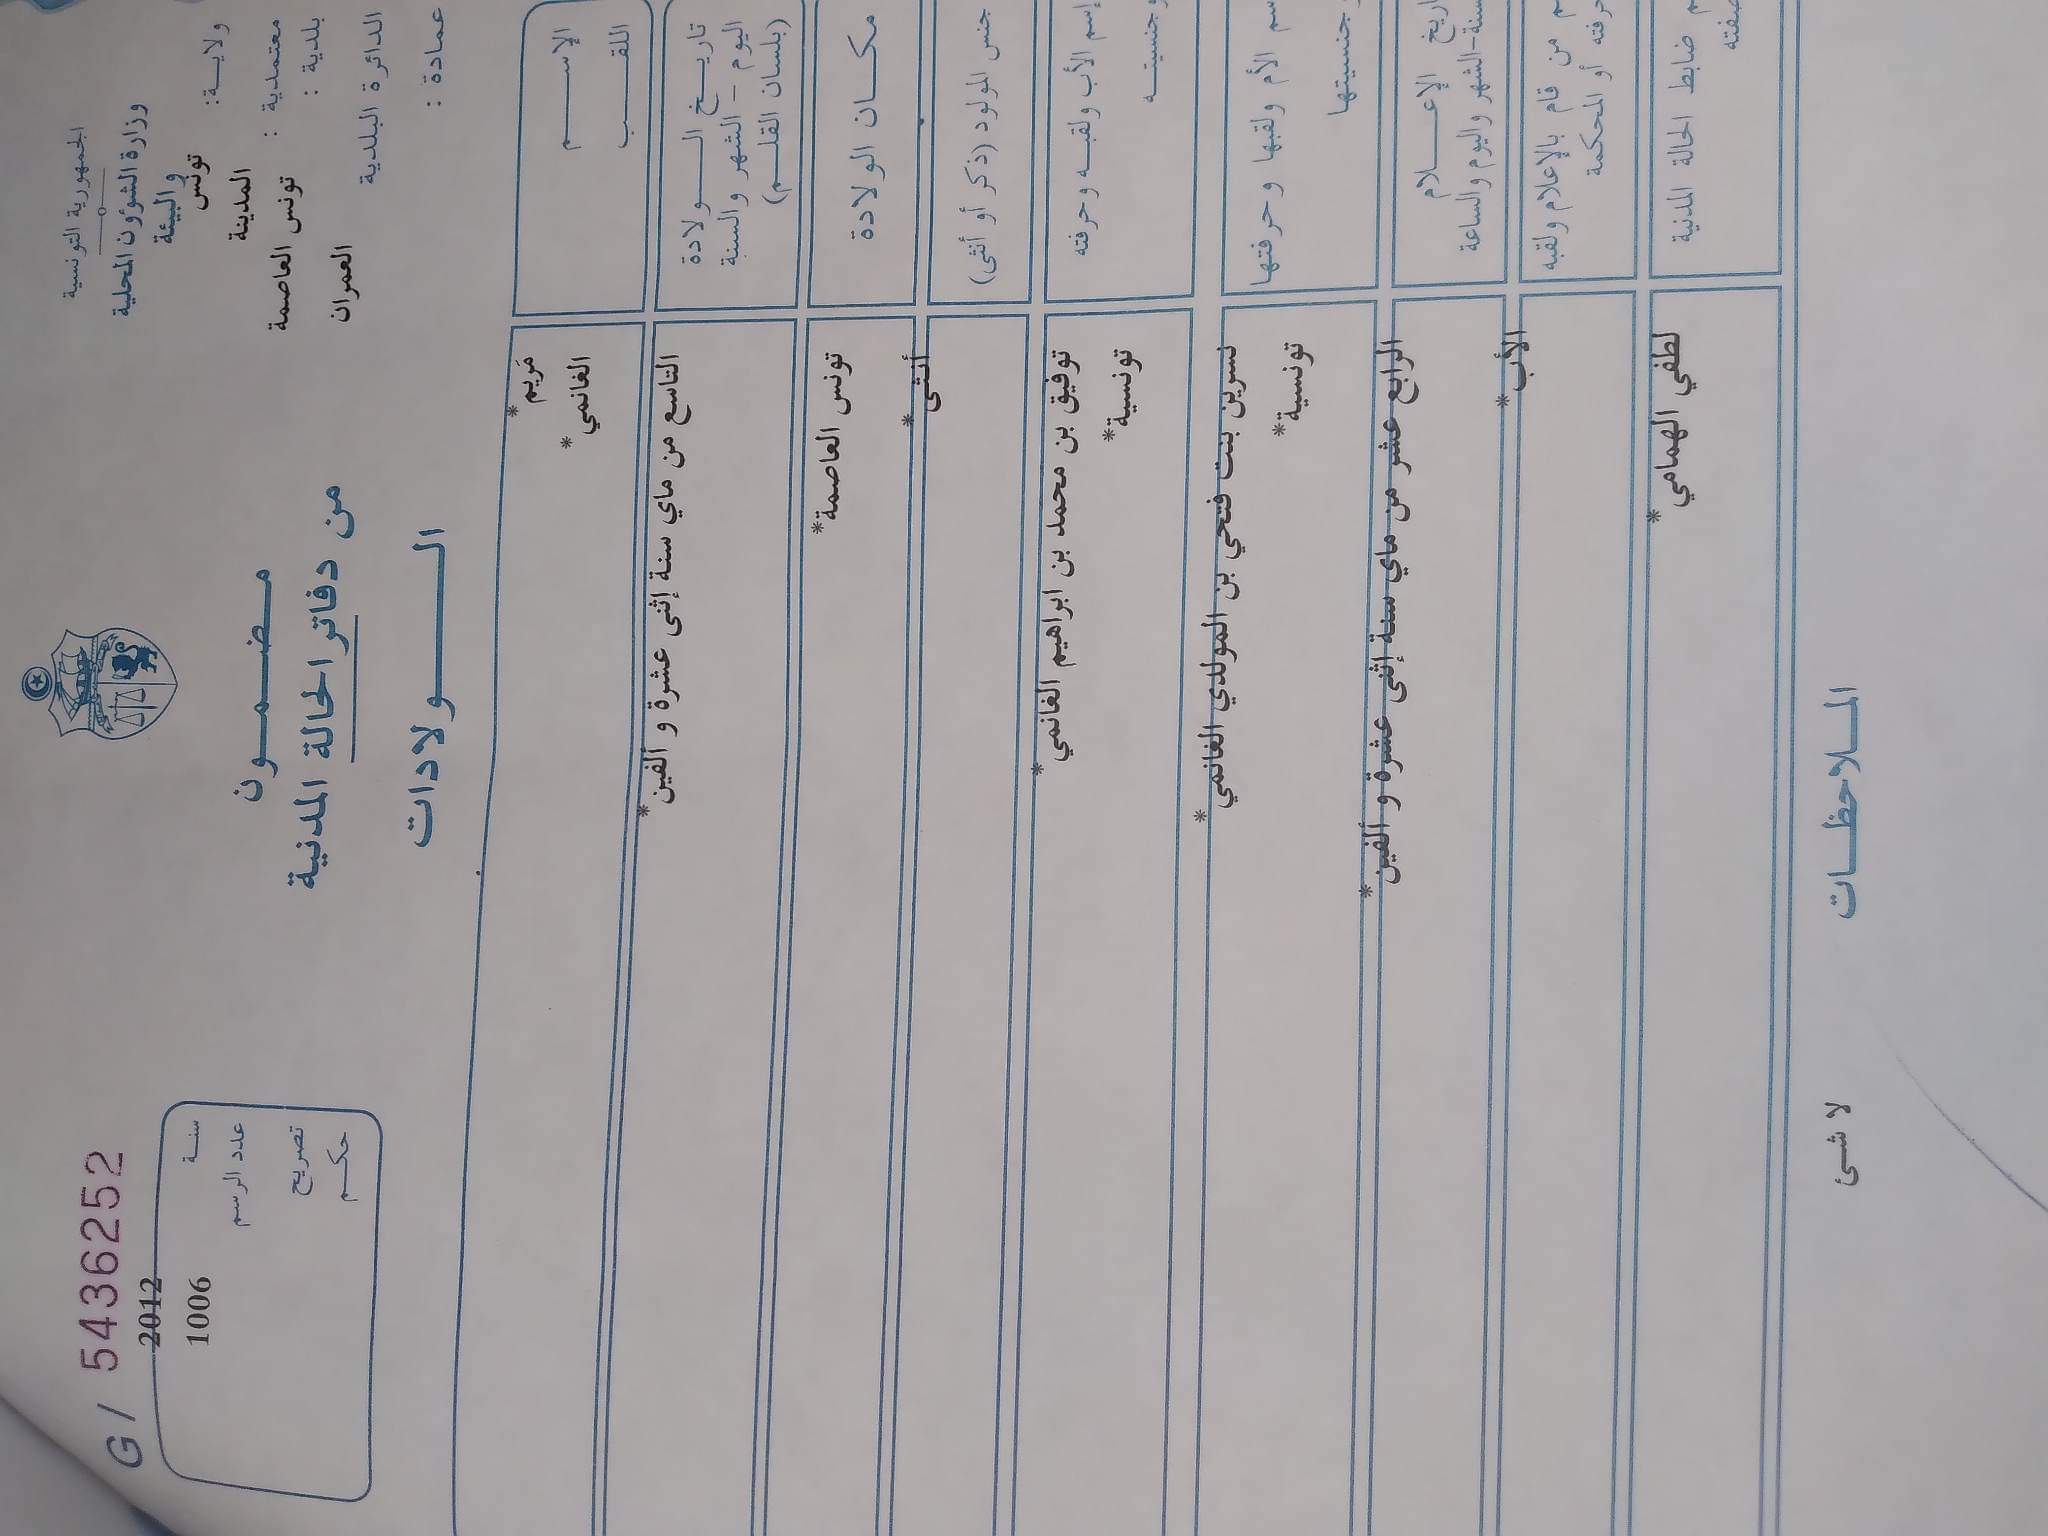 الجمهورية التونسية
وزارة الشؤون المحلية
والبيئة
ولايـــة: تونس
معتمدية : المدينة
بلدية : تونس العاصمة
الدائرة البلدية العمران
عمادة :
مـضـمـون
من دفاتر الحالة المدنية
الــولادات
G/ 5436252
سنــة 2012
عدد الرسم 1006
تصريح
حكـم
الإســـم
مَريم *
اللقـــب
الغانمي *
تاريــخ الــولادة
اليوم - الشهر والسنة
(بلسان القلـم)
التاسع من ماي سنة إثنى عشرة و ألفين *
مكــان الولادة
تونس العاصمة *
جنس المولود (ذكر أو أنثى)
أنثى *
إسم الأب ولقبـه وحرفته
وجنسيتــه
توفيق بن محمد بن ابراهيم الغانمي *
تونسية *
الأم ولقبها وحرفتها
وجنسيتها
نسرين بنت فتحي بن المولدي الغانمي *
تونسية *
الإعـــلام
والشهر واليوم والساعة
الرابع عشر من ماي سنة إثنى عشرة و ألفين *
من قام بالإعلام ولقبه
أو المحكمة
الأب *
ضابط الحالة المدنية
لطفي الهمامي *
المــلاحظــات
لا شئ